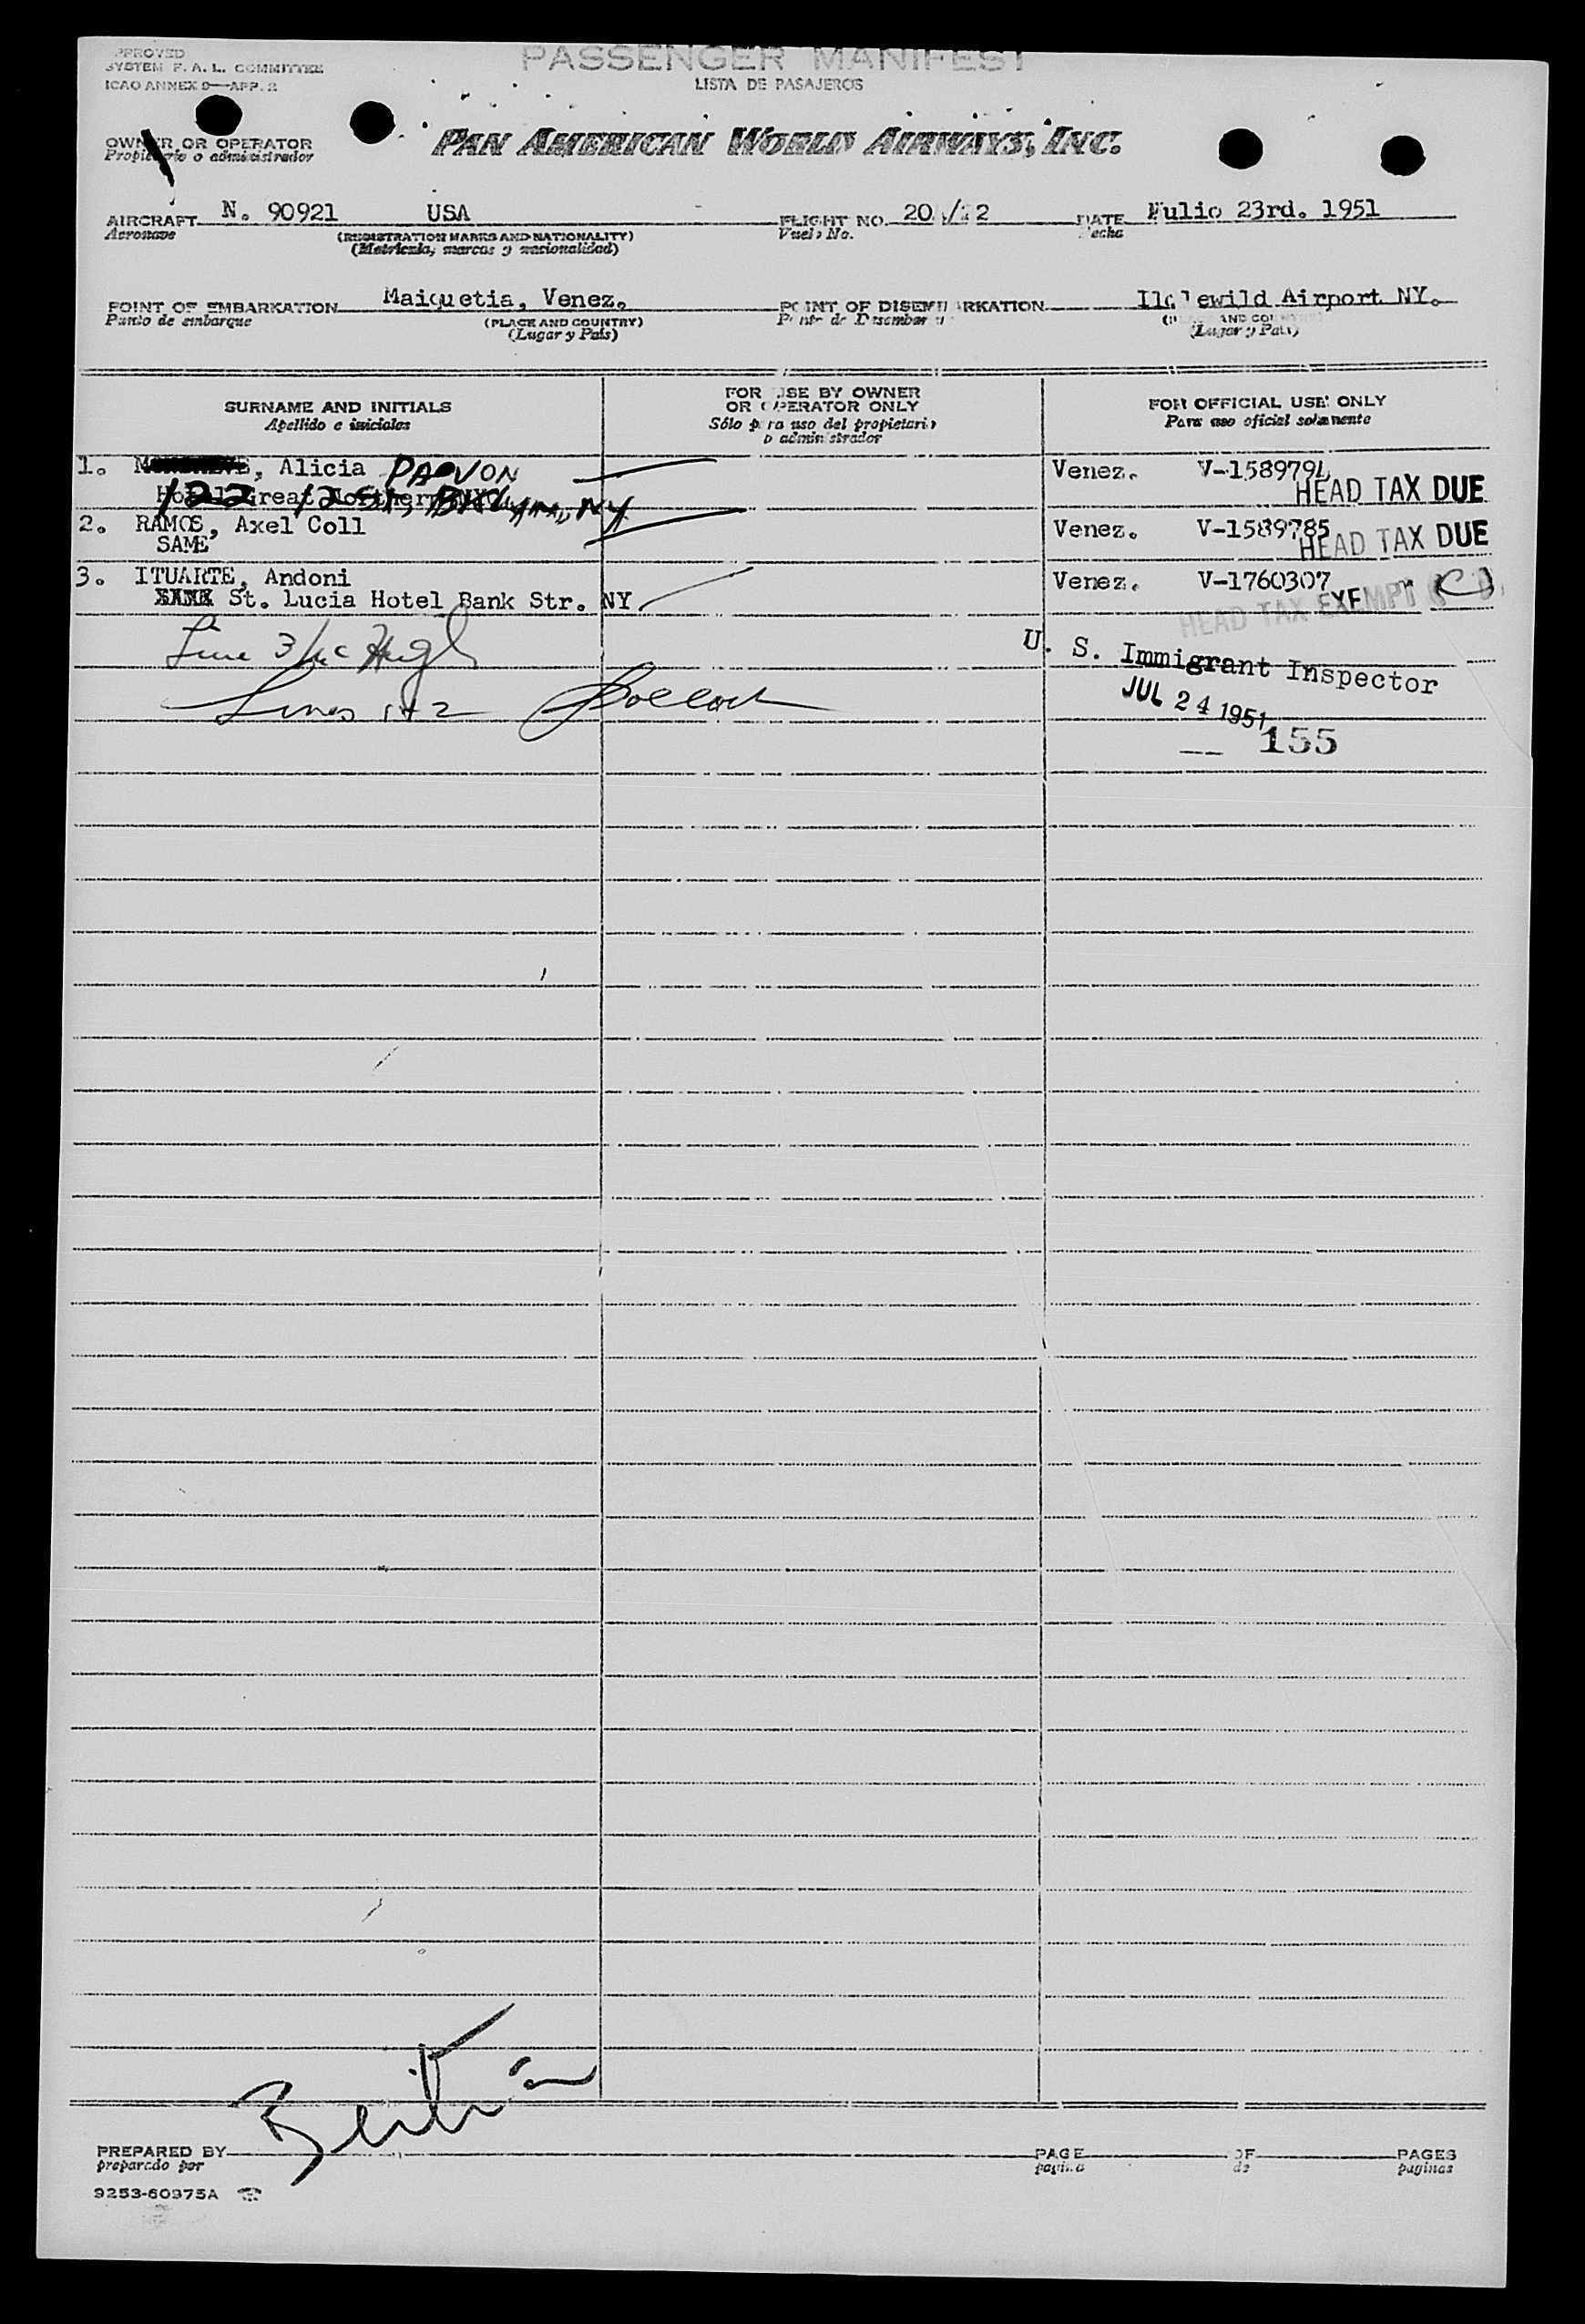 APPROVED
SYSTEM F. A. L. COMMITTEE
ICAO ANNEX 9—APP. 2
PASSENGER MANIFEST
LISTA DE PASAJEROS
OWNER OR OPERATOR
Propietario o administrador
PAN AMERICAN WORLD AIRWAYS, INC.
AIRCRAFT N. 90921 USA FLIGHT NO. DATE Julio 23rd. 1951
Aeronave (REGISTRATION MARKS AND NATIONALITY) Vuelo No. Fecha
(Matrícula, marcas y nacionalidad)
POINT OF EMBARKATION Maiquetia, Venez. POINT OF DISEMBARKATION Idlewild Airport NY.
Punto de embarque (PLACE AND COUNTRY) Punto de Desembarque (PLACE AND COUNTRY)
(Lugar y País) (Lugar y País)
SURNAME AND INITIALS FOR USE BY OWNER OR OPERATOR ONLY FOR OFFICIAL USE ONLY
Apellido e iniciales Sólo para uso del propietario o administrador Para uso oficial solamente
1. , Alicia PABON Venez. V-1589794
Hotel Great Northern NY 122 12 St, BKLyn, NY HEAD TAX DUE
2. RAMOS, Axel Coll Venez. V-1589785
SAME HEAD TAX DUE
3. ITUARTE, Andoni Venez. V-1760307
SAME St. Lucia Hotel Bank Str. NY HEAD TAX EXEMPT
Line 3 McHugh
U. S. Immigrant Inspector
Lines 1+2 Pollock
JUL 24 1951
155
PREPARED BY PAGE OF PAGES
preparado por pagina de paginas
9253-60975A